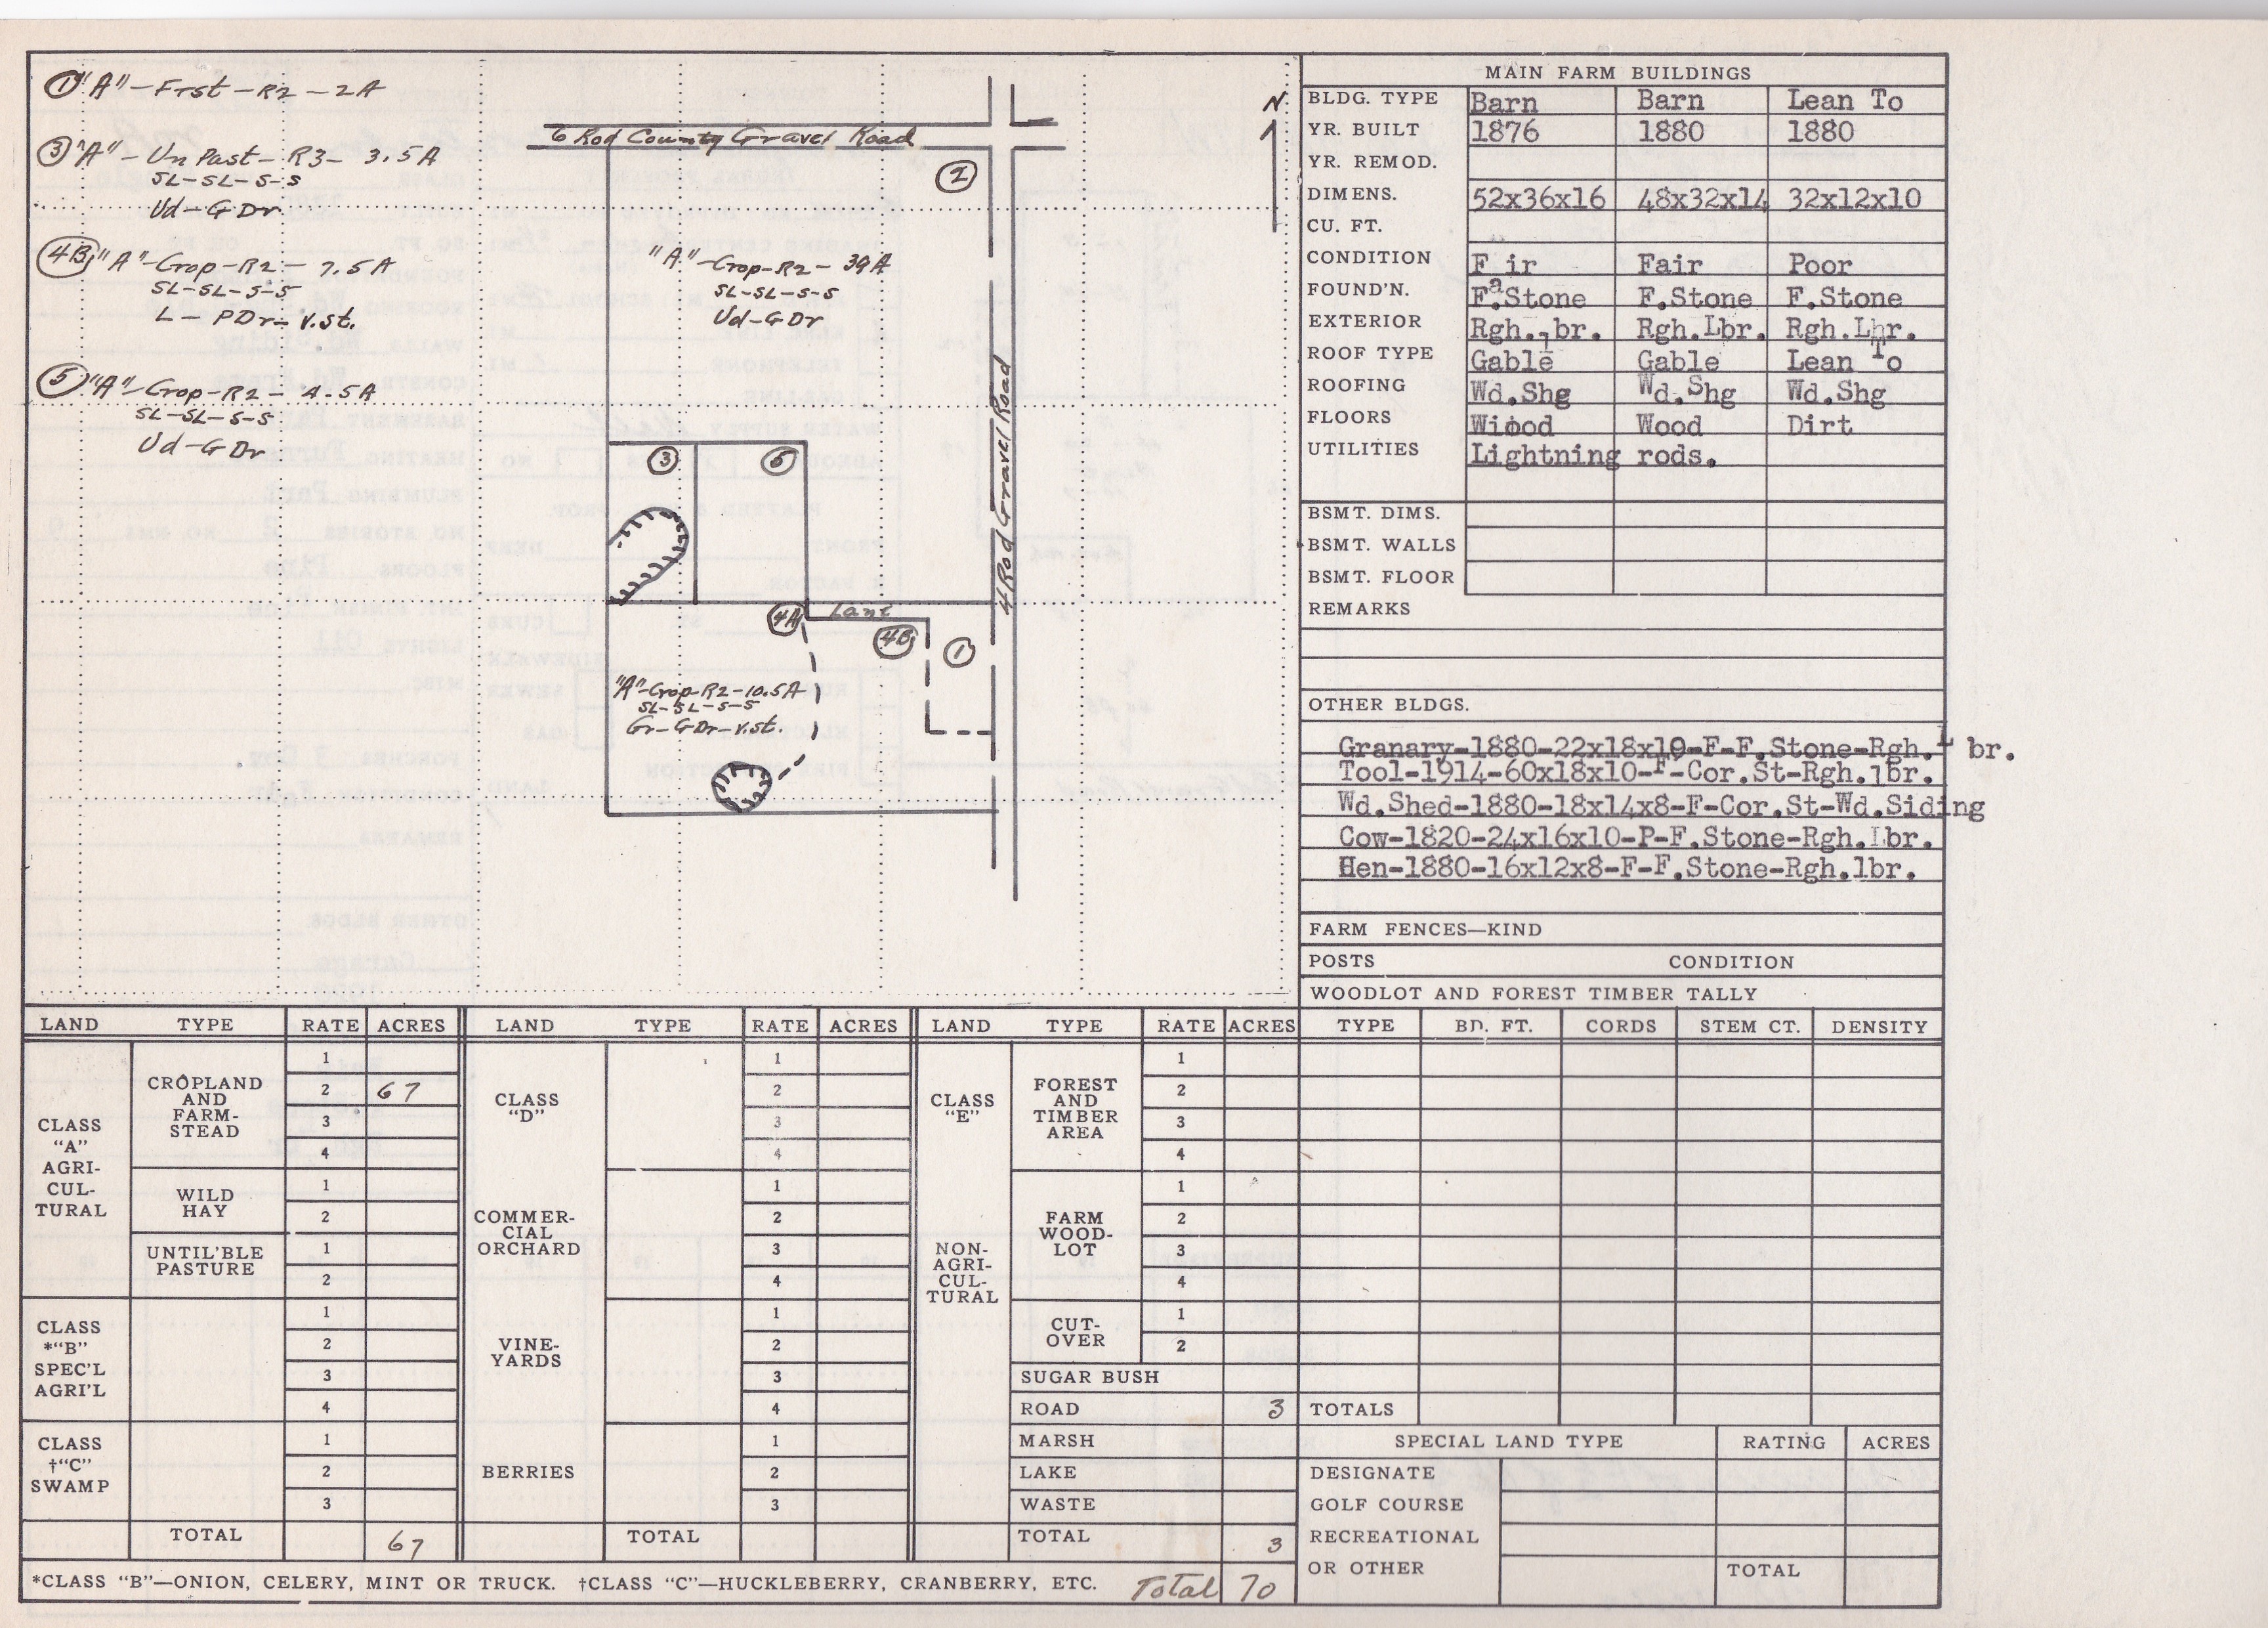 ① "A"-Frst-R2-2A
③ "A"-Un Past-R3-3.5A
SL-SL-S-S
Ud-G Dr
④B "A"-Crop-R2-7.5A
SL-SL-S-S
L-PDr-v.st.
⑤ "A"-Crop-R2-4.5A
SL-SL-S-S
Ud-G Dr
6 Rod County Gravel Road
N
②
"A"-Crop-R2-39A
SL-SL-S-S
Ud-G Dr
4 Rod Gravel Road
③ ⑤
4A Lane
4B ①
"A"-Crop-R2-10.5A
SL-SL-S-S
Gr-GDr-v.st.
MAIN FARM BUILDINGS
BLDG. TYPE Barn Barn Lean To
YR. BUILT 1876 1880 1880
YR. REMOD.
DIMENS. 52x36x16 48x32x14 32x12x10
CU. FT.
CONDITION F ir Fair Poor
FOUND'N. F.aStone F.Stone F.Stone
EXTERIOR Rgh.lbr. Rgh.Lbr. Rgh.Lbr.
ROOF TYPE Gable Gable Lean To
ROOFING Wd.Shg Wd.Shg Wd.Shg
FLOORS Wiood Wood Dirt
UTILITIES Lightning rods.
BSMT. DIMS.
BSMT. WALLS
BSMT. FLOOR
REMARKS
OTHER BLDGS.
Granary-1880-22x18x10-F-F.Stone-Rgh.L br.
Tool-1914-60x18x10-F-Cor.St-Rgh.lbr.
Wd.Shed-1880-18x14x8-F-Cor.St-Wd.Siding
Cow-1820-24x16x10-P-F.Stone-Rgh.Lbr.
Hen-1880-16x12x8-F-F.Stone-Rgh.lbr.
FARM FENCES—KIND
POSTS CONDITION
WOODLOT AND FOREST TIMBER TALLY
TYPE BD. FT. CORDS STEM CT. DENSITY
TOTALS
SPECIAL LAND TYPE RATING ACRES
DESIGNATE
GOLF COURSE
RECREATIONAL
OR OTHER TOTAL
LAND TYPE RATE ACRES
CLASS
"A"
AGRI-
CUL-
TURAL
CROPLAND
AND
FARM-
STEAD
1
2 67
3
4
WILD
HAY
1
2
UNTIL'BLE
PASTURE
1
2
CLASS
*"B"
SPEC'L
AGRI'L
1
2
3
4
CLASS
†"C"
SWAMP
1
2
3
TOTAL 67
LAND TYPE RATE ACRES
CLASS
"D"
1
2
3
4
COMMER-
CIAL
ORCHARD
1
2
3
4
VINE-
YARDS
1
2
3
4
BERRIES
1
2
3
TOTAL
LAND TYPE RATE ACRES
CLASS
"E"
NON-
AGRI-
CUL-
TURAL
FOREST
AND
TIMBER
AREA
1
2
3
4
FARM
WOOD-
LOT
1
2
3
4
CUT-
OVER
1
2
SUGAR BUSH
ROAD 3
MARSH
LAKE
WASTE
TOTAL 3
*CLASS "B"—ONION, CELERY, MINT OR TRUCK. †CLASS "C"—HUCKLEBERRY, CRANBERRY, ETC. Total 70